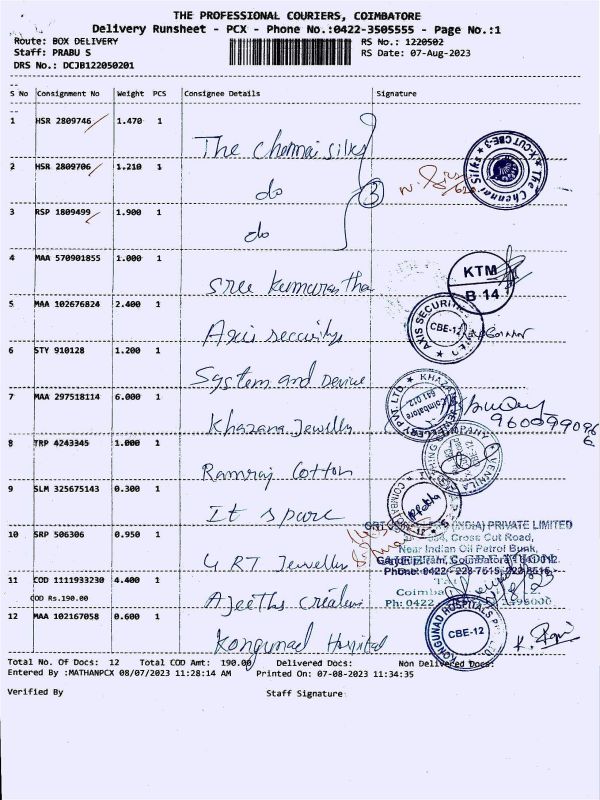 THE PROFESSIONAL COURIERS, COIMBATORE
Delivery Runsheet - PCX - Phone No.:0422-3505555 - Page No.:1
Route: BOX DELIVERY RS No.: 1220502
Staff: PRABU S RS Date: 07-Aug-2023
DRS No.: DCJB122050201
S No Consignment No Weight PCS Consignee Details Signature
1 HSR 2809746 1.470 1 The Chennai silks
2 HSR 2809706 1.210 1 do 3
3 RSP 1809499 1.900 1 do
The Chennai Silks ★ X-CUT CBE-3 ★
4 MAA 570901855 1.000 1 Sree Kumaran tha
KTM
B 14
5 MAA 102676824 2.400 1 Axis security
AXIS SECURITY
CBE-12
6 STY 910128 1.200 1 System and Device
7 MAA 297518114 6.000 1 Khazana Jewellery
KHAZANA JEWELLERY PVT. LTD.
641 012
Coimbatore
8 TRP 4243345 1.000 1 Ramraj Cotton
VENNILA
COMPANY
9 SLM 325675143 0.300 1 It spare
10 SRP 506306 0.950 1 G.R.T Jewellers
(INDIA) PRIVATE LIMITED
Cross Cut Road,
Near Indian Oil Petrol Bunk,
11 COD 1111933230 4.400 1 Ajeeths creations
COD Rs.190.00
Ph: 0422
12 MAA 102167058 0.600 1 Kongunad Hospital
KONGUNAD HOSPITALS
CBE-12
Total No. Of Docs: 12 Total COD Amt: 190.00 Delivered Docs: Non Delivered Docs:
Entered By :MATHANPCX 08/07/2023 11:28:14 AM Printed On: 07-08-2023 11:34:35
Verified By Staff Signature: